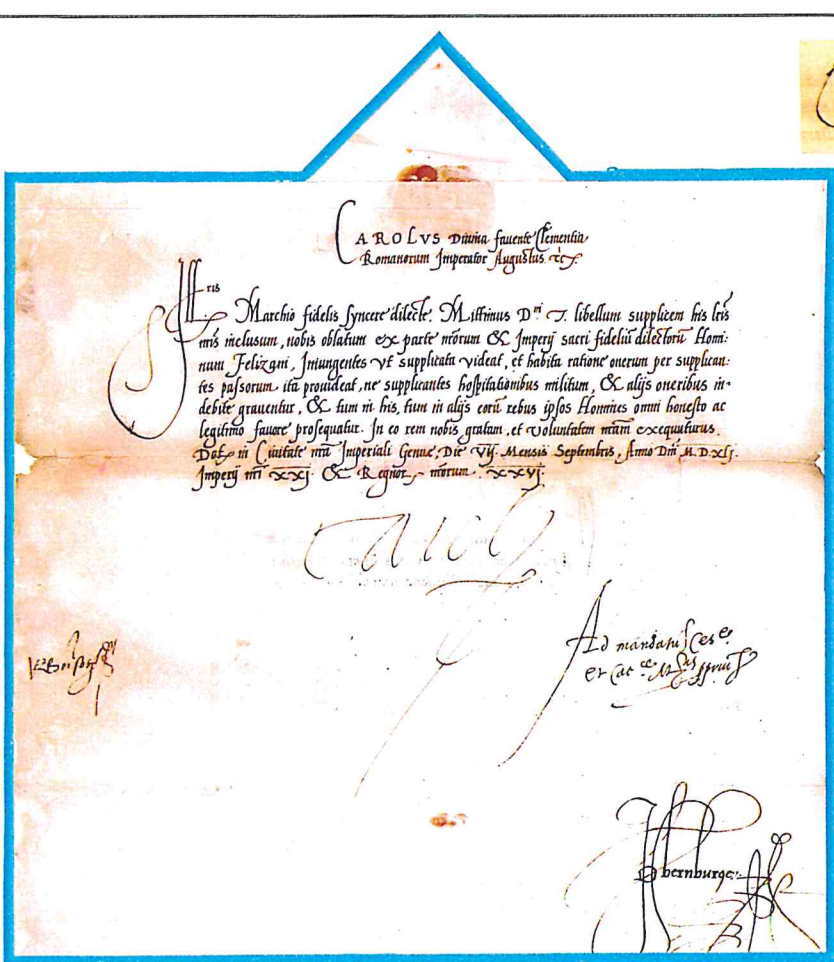 CAROLVS Diuina fauente Clementia
Romanorum Imperator Augustus &c.
Illris
Marchio fidelis syncere dilecte. Mittimus D.ni T. libellum supplicem his lris
nris inclusum, nobis oblatum ex parte nrorum & Imperij sacri fideliũ dilectorũ Homi:
num Felizani, Iniungentes vt supplicata videat, et habita ratione onerum per supplican:
tes passorum, ita prouideat, ne supplicantes hospitationibus militum, & alijs oneribus in-
debite grauentur, & tum in his, tum in alijs eorũ rebus ipsos Homines omni honesto ac
legitimo fauore prosequatur. In eo rem nobis gratam, et voluntatem nram exequuturus.
Dat. in Ciuitate nra Imperiali Genue, Die Vij. Mensis Septembris, Anno Dni M.D.xlj.
Imperij nri xxj. & Regnor. nrorum. xxvj.
Carolus
Ad mandatũ Ces.e
et Cat.ce M.tis ppriũ
Obernburger